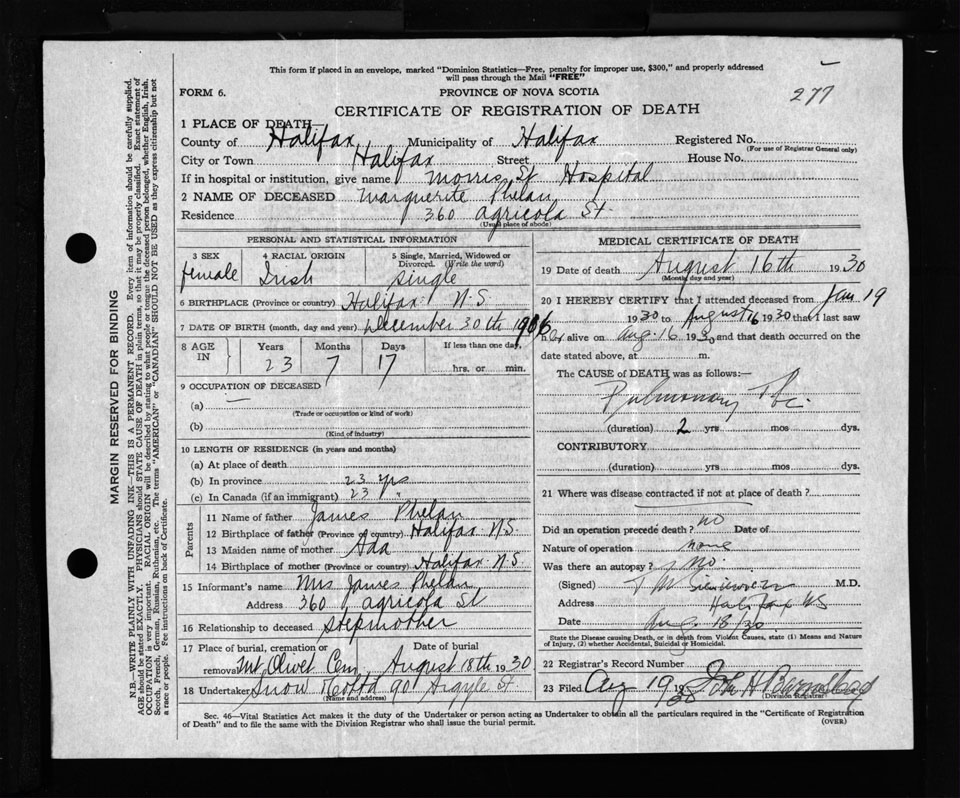 This form if placed in an envelope, marked "Dominion Statistics—Free, penalty for improper use, $300," and properly addressed
will pass through the Mail "FREE"
FORM 6.
PROVINCE OF NOVA SCOTIA
277
CERTIFICATE OF REGISTRATION OF DEATH
1 PLACE OF DEATH—
County of Halifax Municipality of Halifax Registered No.
(For use of Registrar General only)
City or Town Halifax Street House No.
If in hospital or institution, give name Morris St Hospital
2 NAME OF DECEASED Marguerite Phelan
Residence 360 Agricola St
(Usual place of abode)
PERSONAL AND STATISTICAL INFORMATION
3 SEX 4 RACIAL ORIGIN 5 Single, Married, Widowed or Divorced. (Write the word)
female Irish single
6 BIRTHPLACE (Province or country) Halifax N.S.
7 DATE OF BIRTH (month, day and year) December 30th 1906
8 AGE IN Years Months Days If less than one day,
23 7 17 hrs. or min.
9 OCCUPATION OF DECEASED
(a) —
(Trade or occupation or kind of work)
(b)
(Kind of industry)
10 LENGTH OF RESIDENCE (in years and months)
(a) At place of death
(b) In province 23 yrs
(c) In Canada (if an immigrant) 23 "
Parents
11 Name of father James Phelan
12 Birthplace of father (Province or country) Halifax N.S.
13 Maiden name of mother Ada
14 Birthplace of mother (Province or country) Halifax N.S.
15 Informant's name Mrs James Phelan
Address 360 Agricola St
16 Relationship to deceased stepmother
17 Place of burial, cremation or removal Date of burial
Mt Olivet Cem. August 18th 1930
18 Undertaker Snow & Co Ltd 90 Argyle St
(Name and address)
MEDICAL CERTIFICATE OF DEATH
19 Date of death August 16th 1930
(Month, day and year)
20 I HEREBY CERTIFY that I attended deceased from Jan 19
1930 to August 16 1930 that I last saw
her alive on Aug. 16 1930 and that death occurred on the
date stated above, at m.
The CAUSE of DEATH was as follows:—
Pulmonary Tbc.
(duration) 2 yrs mos dys.
CONTRIBUTORY
(duration) yrs mos dys.
21 Where was disease contracted if not at place of death?
Did an operation precede death? no Date of
Nature of operation none
Was there an autopsy? no.
(Signed) T M Sieniewicz M.D.
Address Halifax NS
Date Aug. 18/30
State the Disease causing Death, or in death from Violent Causes, state (1) Means and Nature
of Injury, (2) whether Accidental, Suicidal or Homicidal.
22 Registrar's Record Number
23 Filed Aug 19 1930 John H Barnstead
Division Registrar
Sec. 46—Vital Statistics Act makes it the duty of the Undertaker or person acting as Undertaker to obtain all the particulars required in the "Certificate of Registration
of Death" and to file the same with the Division Registrar who shall issue the burial permit.
(OVER)
MARGIN RESERVED FOR BINDING
N.B.—WRITE PLAINLY WITH UNFADING INK—THIS IS A PERMANENT RECORD. Every item of information should be carefully supplied.
AGE should be stated EXACTLY. PHYSICIANS should STATE CAUSE OF DEATH in plain terms, so that it may be properly classified. Exact statement of
OCCUPATION is very important. RACIAL ORIGIN will be described by stating to what people or tongue the deceased person belonged, whether English, Irish,
Scotch, French, German, Russian, Ruthenian, etc. The terms "AMERICAN" or "CANADIAN" SHOULD NOT BE USED as they express citizenship but not
a race or people. Fee instructions on back of Certificate.